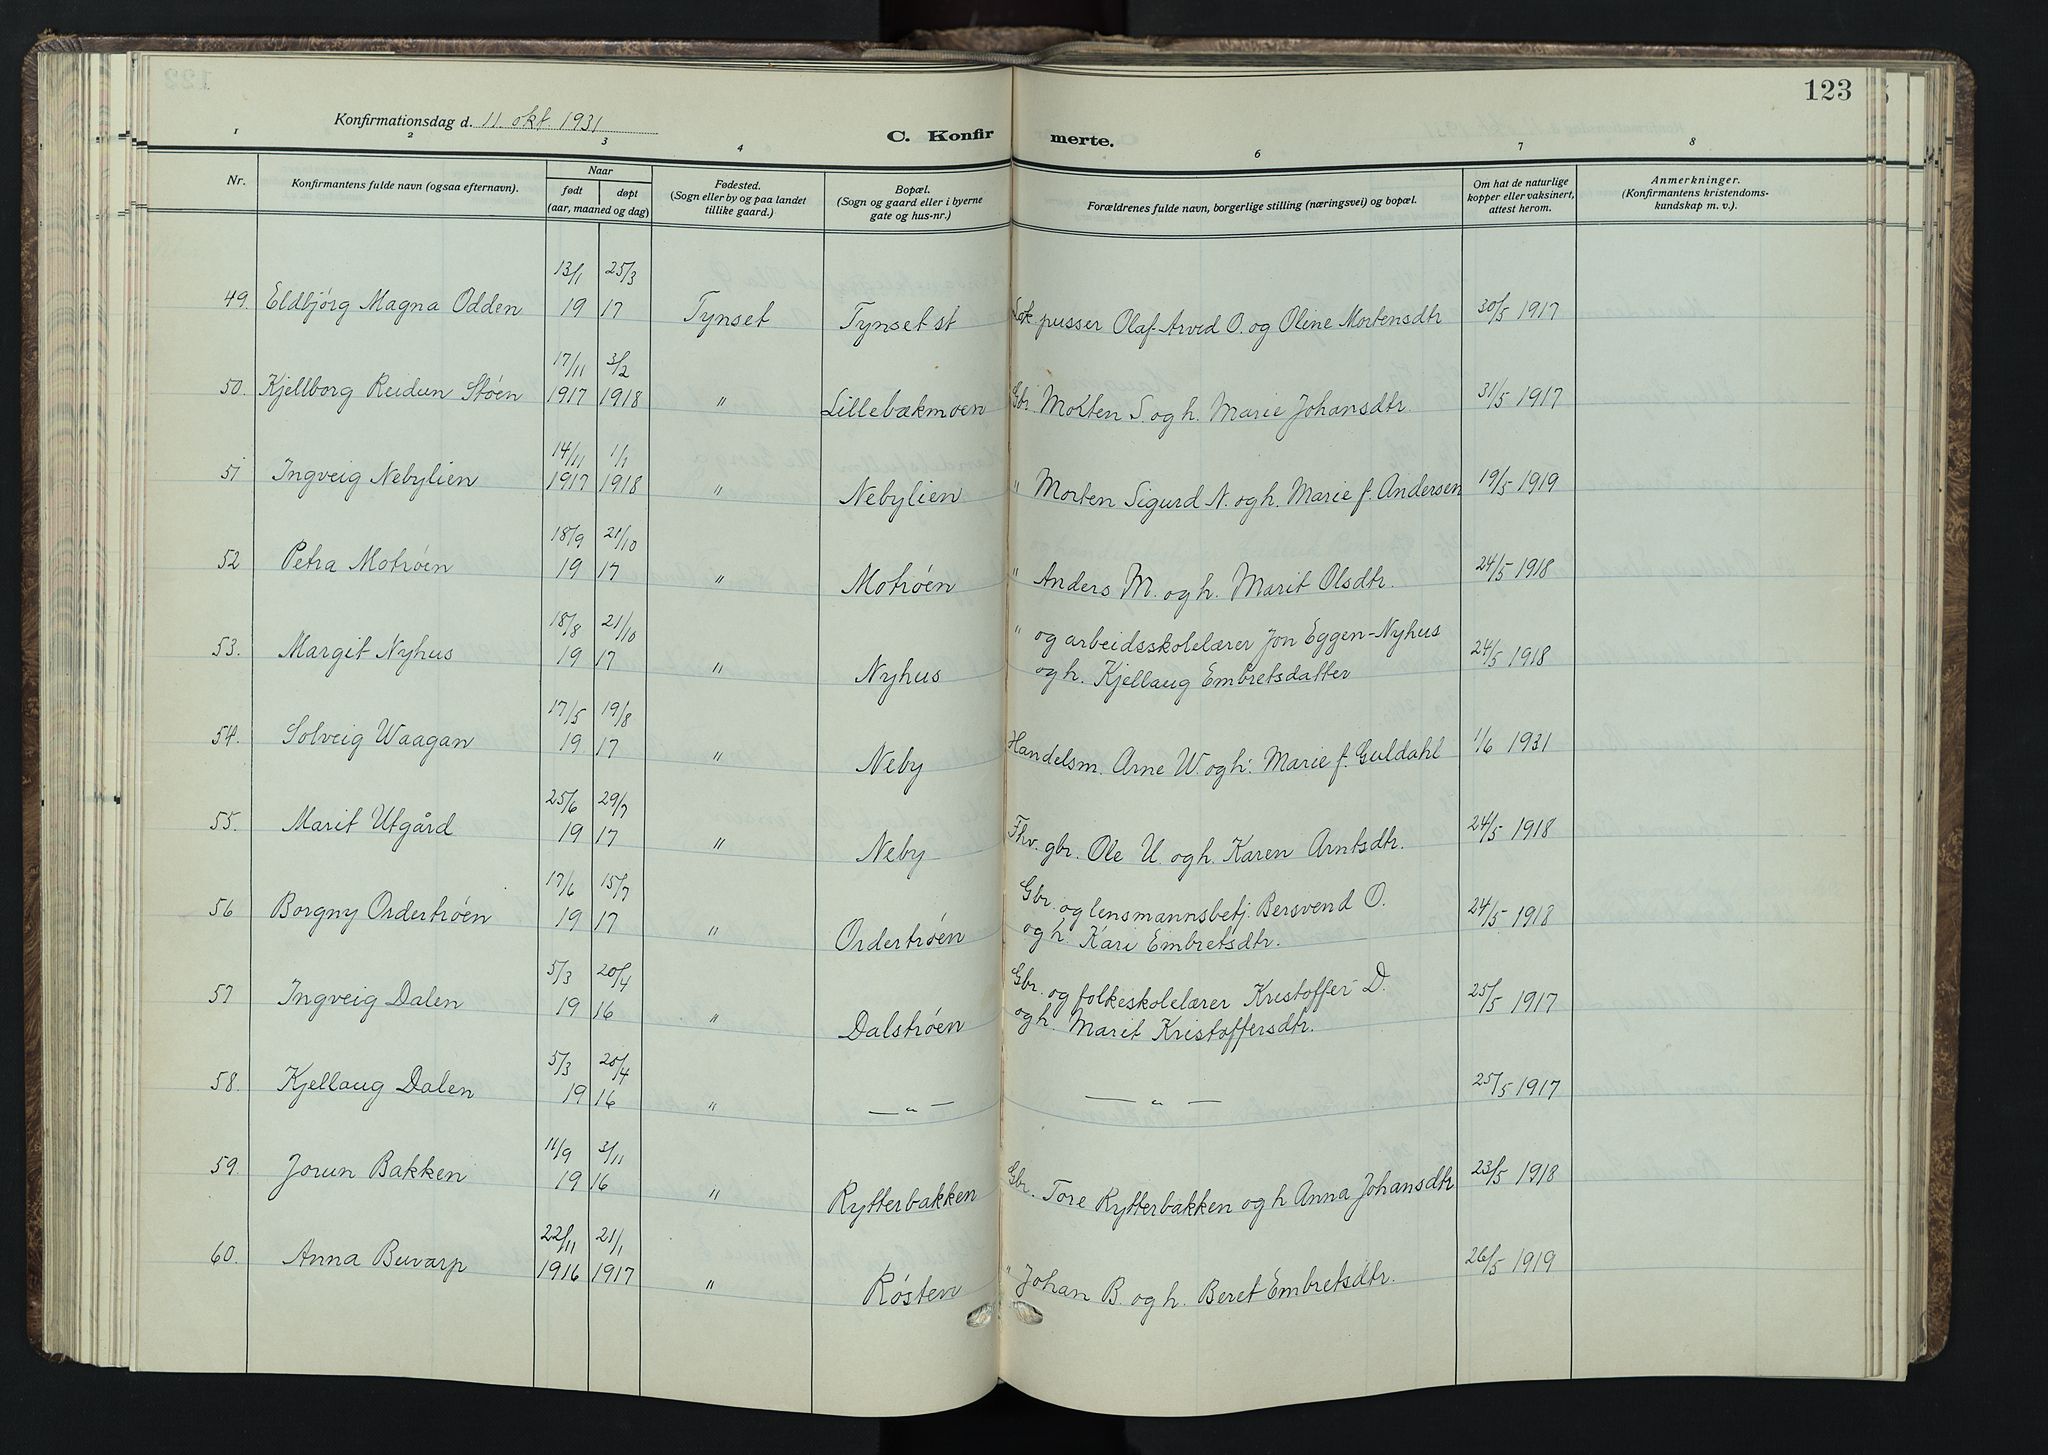 123
Konfirmationsdag d. 11. okt. 1931
C. Konfirmerte.
1 2 3 4 6 7 8
Nr.
Konfirmantens fulde navn (ogsaa efternavn).
Naar
født døpt
(aar, maaned og dag)
Fødested.
(Sogn eller by og paa landet
tillike gaard.)
Bopæl.
(Sogn og gaard eller i byerne
gate og hus-nr.)
Forældrenes fulde navn, borgerlige stilling (næringsvei) og bopæl.
Om hat de naturlige
kopper eller vaksinert,
attest herom.
Anmerkninger.
(Konfirmantens kristendoms-
kundskap m. v.).
13/1 25/3
49. Eldbjørg Magna Odden 19 17 Tynset Tynset st Lok pusser Olaf Arvid O. og Oline Mortensdtr 30/5 1917
17/11 3/2
50. Kjellborg Reidun Støen 1917 1918 " Lillebækmoen Gbr. Morten S. og h. Marie Johansdtr. 31/5 1917
14/11 1/1
51 Ingveig Nebylien 1917 1918 " Nebylien " Morten Sigurd N. og h. Marie f. Andersen 19/5 1919
18/9 21/10
52 Petra Motrøen 19 17 " Motrøen " Anders M. og h. Marit Olsdtr. 24/5 1918
18/8 21/10
53. Margit Nyhus 19 17 " Nyhus " og arbeidsskolelærer Jon Eggen-Nyhus
og h. Kjellaug Embretsdatter 24/5 1918
17/5 19/8
54. Solveig Waagan 19 17 " Neby Handelsm. Arne W. og h. Marie f. Guldahl 1/6 1931
25/6 29/7
55. Marit Utgård 19 17 " Neby Fhv. gbr. Ole U. og h. Karen Arntsdtr. 24/5 1918
17/6 15/7
56 Borgny Ordertrøen 19 17 " Ordertrøen Gbr. og lensmannsbetj. Bersvend O.
og h. Kari Embretsdtr. 24/5 1918
5/3 20/4
57 Ingveig Dalen 19 16 " Dalstrøen Gbr. og folkeskolelærer Kristoffer D.
og h. Marit Kristoffersdtr. 25/5 1917
5/3 20/4
58. Kjellaug Dalen 19 16 " — " — — " — 25/5 1917
11/9 3/11
59. Jorun Bakken 19 16 " Rytterbakken Gbr. Tore Rytterbakken og h Anna Johansdtr 23/5 1918
22/11 21/1
60. Anna Buvarp 1916 1917 " Røsten " Johan B. og h. Beret Embretsdtr. 26/5 1919